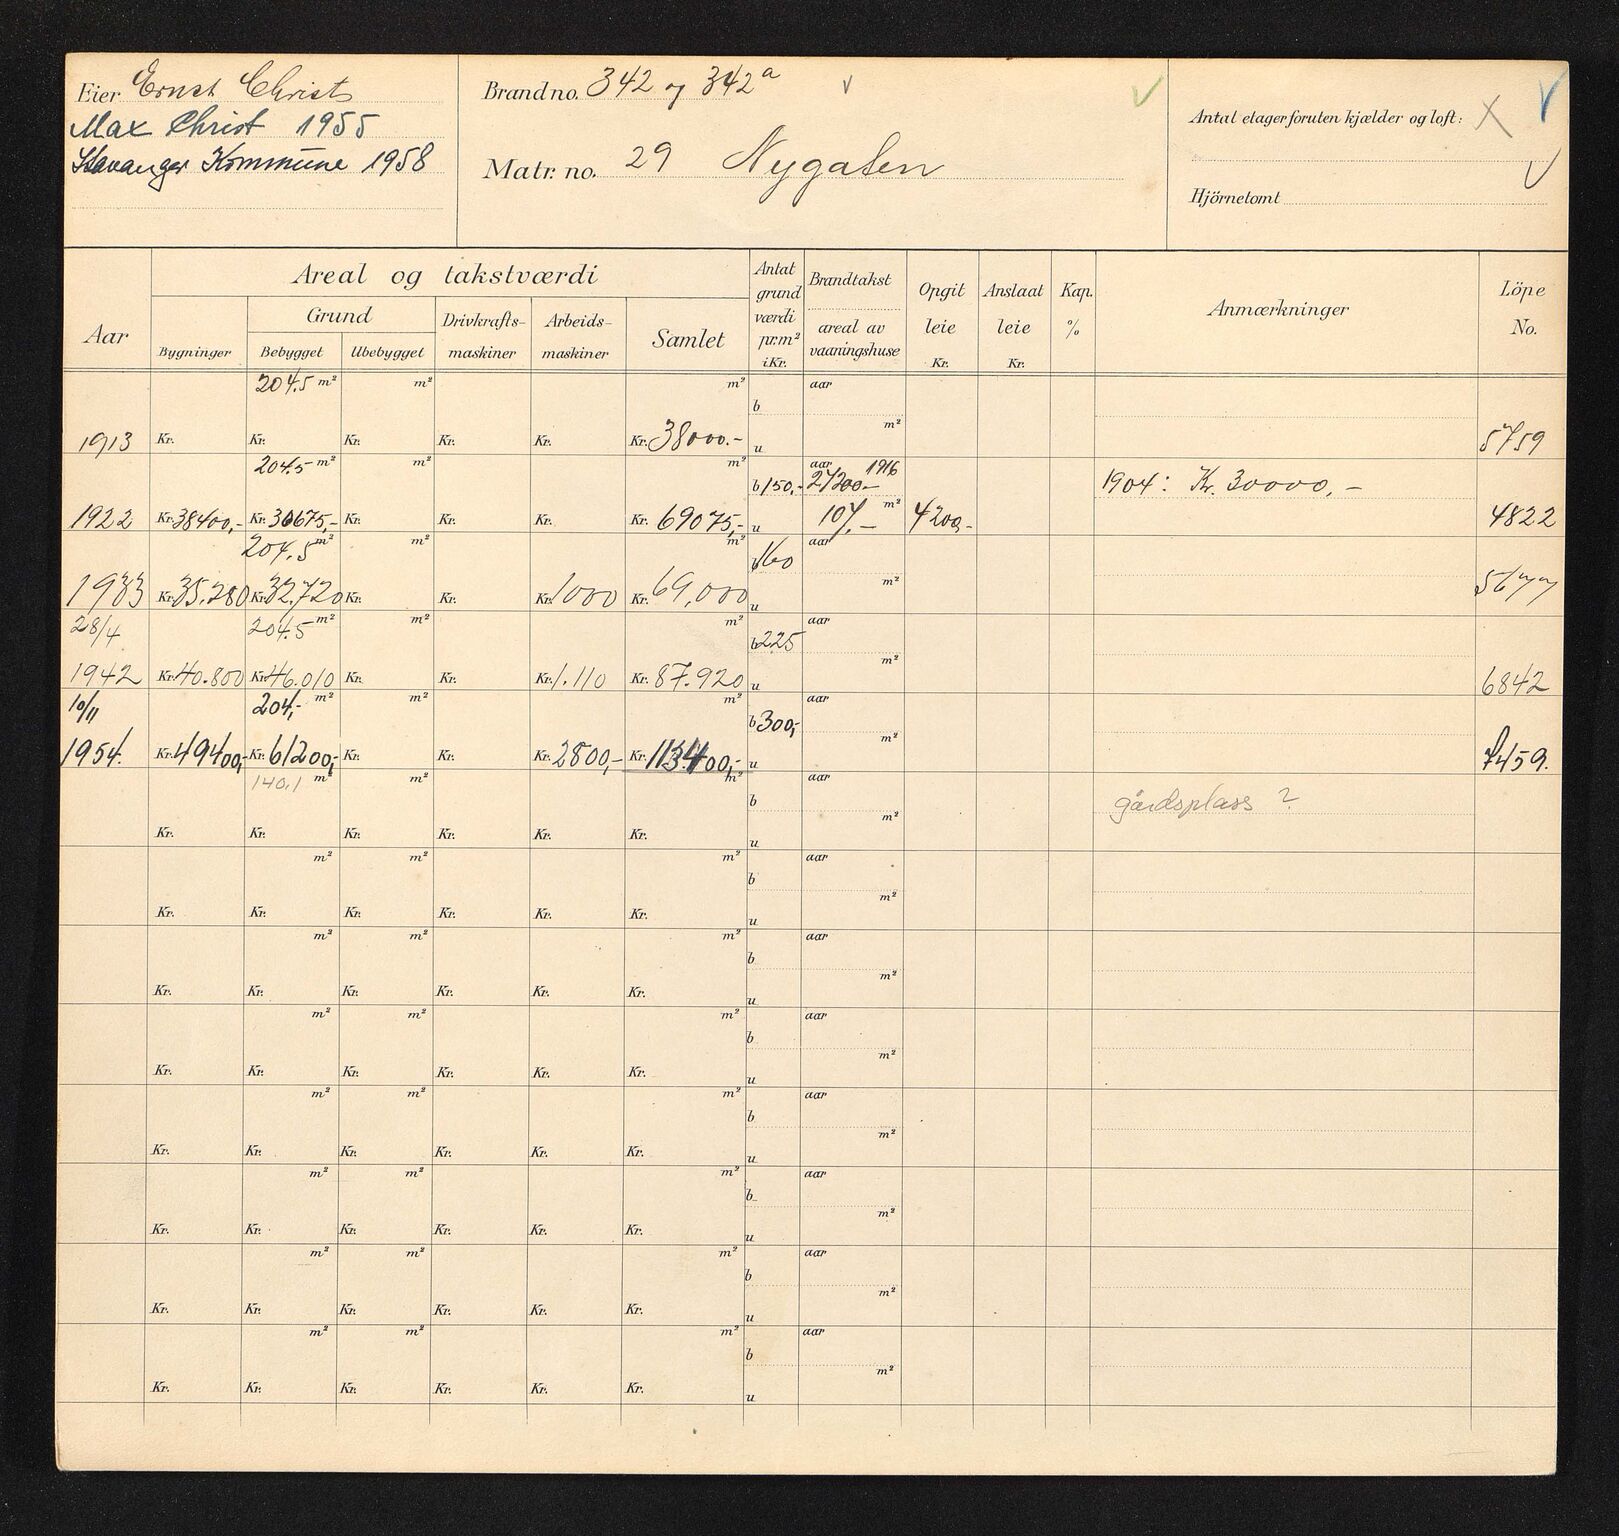 Eier Ernst Christ
Max Christ 1955
Stavanger Kommune 1958
Brand no. 342 og 342a
Matr. no. 29 Nygaten
Antal etager foruten kjælder og loft: X
Hjörnetomt
Aar
Areal og takstværdi
Bygninger
Grund
Bebygget
Ubebygget
Drivkrafts-
maskiner
Arbeids-
maskiner
Samlet
Antat
grund
værdi
pr.m²
i Kr.
Brandtakst
areal av
vaaningshuse
Opgit
leie
Kr.
Anslaat
leie
Kr.
Kap.
%
Anmærkninger
Löpe
No.
204.5 m² m² m² aar
b
m²
1913 Kr. Kr. Kr. Kr. Kr. Kr. 38000.- u 5759
204.5 m² m² m² aar 1916
b 150,- 27200,- 1904: Kr. 30000,-
m²
1922 Kr. 38400,- Kr. 30675,- Kr. Kr. Kr. Kr. 69075,- u 107,- 4200,- 4822
204.5 m² m² m² aar
b 160
m²
1933 Kr. 35.280 Kr. 32.720 Kr. Kr. Kr. 1000 Kr. 69,000 u 5677
28/4 204.5 m² m² m² aar
b 225
m²
1942 Kr. 40.800 Kr. 46.010 Kr. Kr. Kr. 1.110 Kr. 87.920 u 6842
10/11 204,- m² m² m² aar
b 300,-
m²
1954. Kr. 49400,- Kr. 61200,- Kr. Kr. Kr. 2800,- Kr. 113400,- u 7459.
140.1 m² m² m² aar
b gårdsplass ?
m²
Kr. Kr. Kr. Kr. Kr. Kr. u
m² m² m² aar
b
m²
Kr. Kr. Kr. Kr. Kr. Kr. u
m² m² m² aar
b
m²
Kr. Kr. Kr. Kr. Kr. Kr. u
m² m² m² aar
b
m²
Kr. Kr. Kr. Kr. Kr. Kr. u
m² m² m² aar
b
m²
Kr. Kr. Kr. Kr. Kr. Kr. u
m² m² m² aar
b
m²
Kr. Kr. Kr. Kr. Kr. Kr. u
m² m² m² aar
b
m²
Kr. Kr. Kr. Kr. Kr. Kr. u
m² m² m² aar
b
m²
Kr. Kr. Kr. Kr. Kr. Kr. u